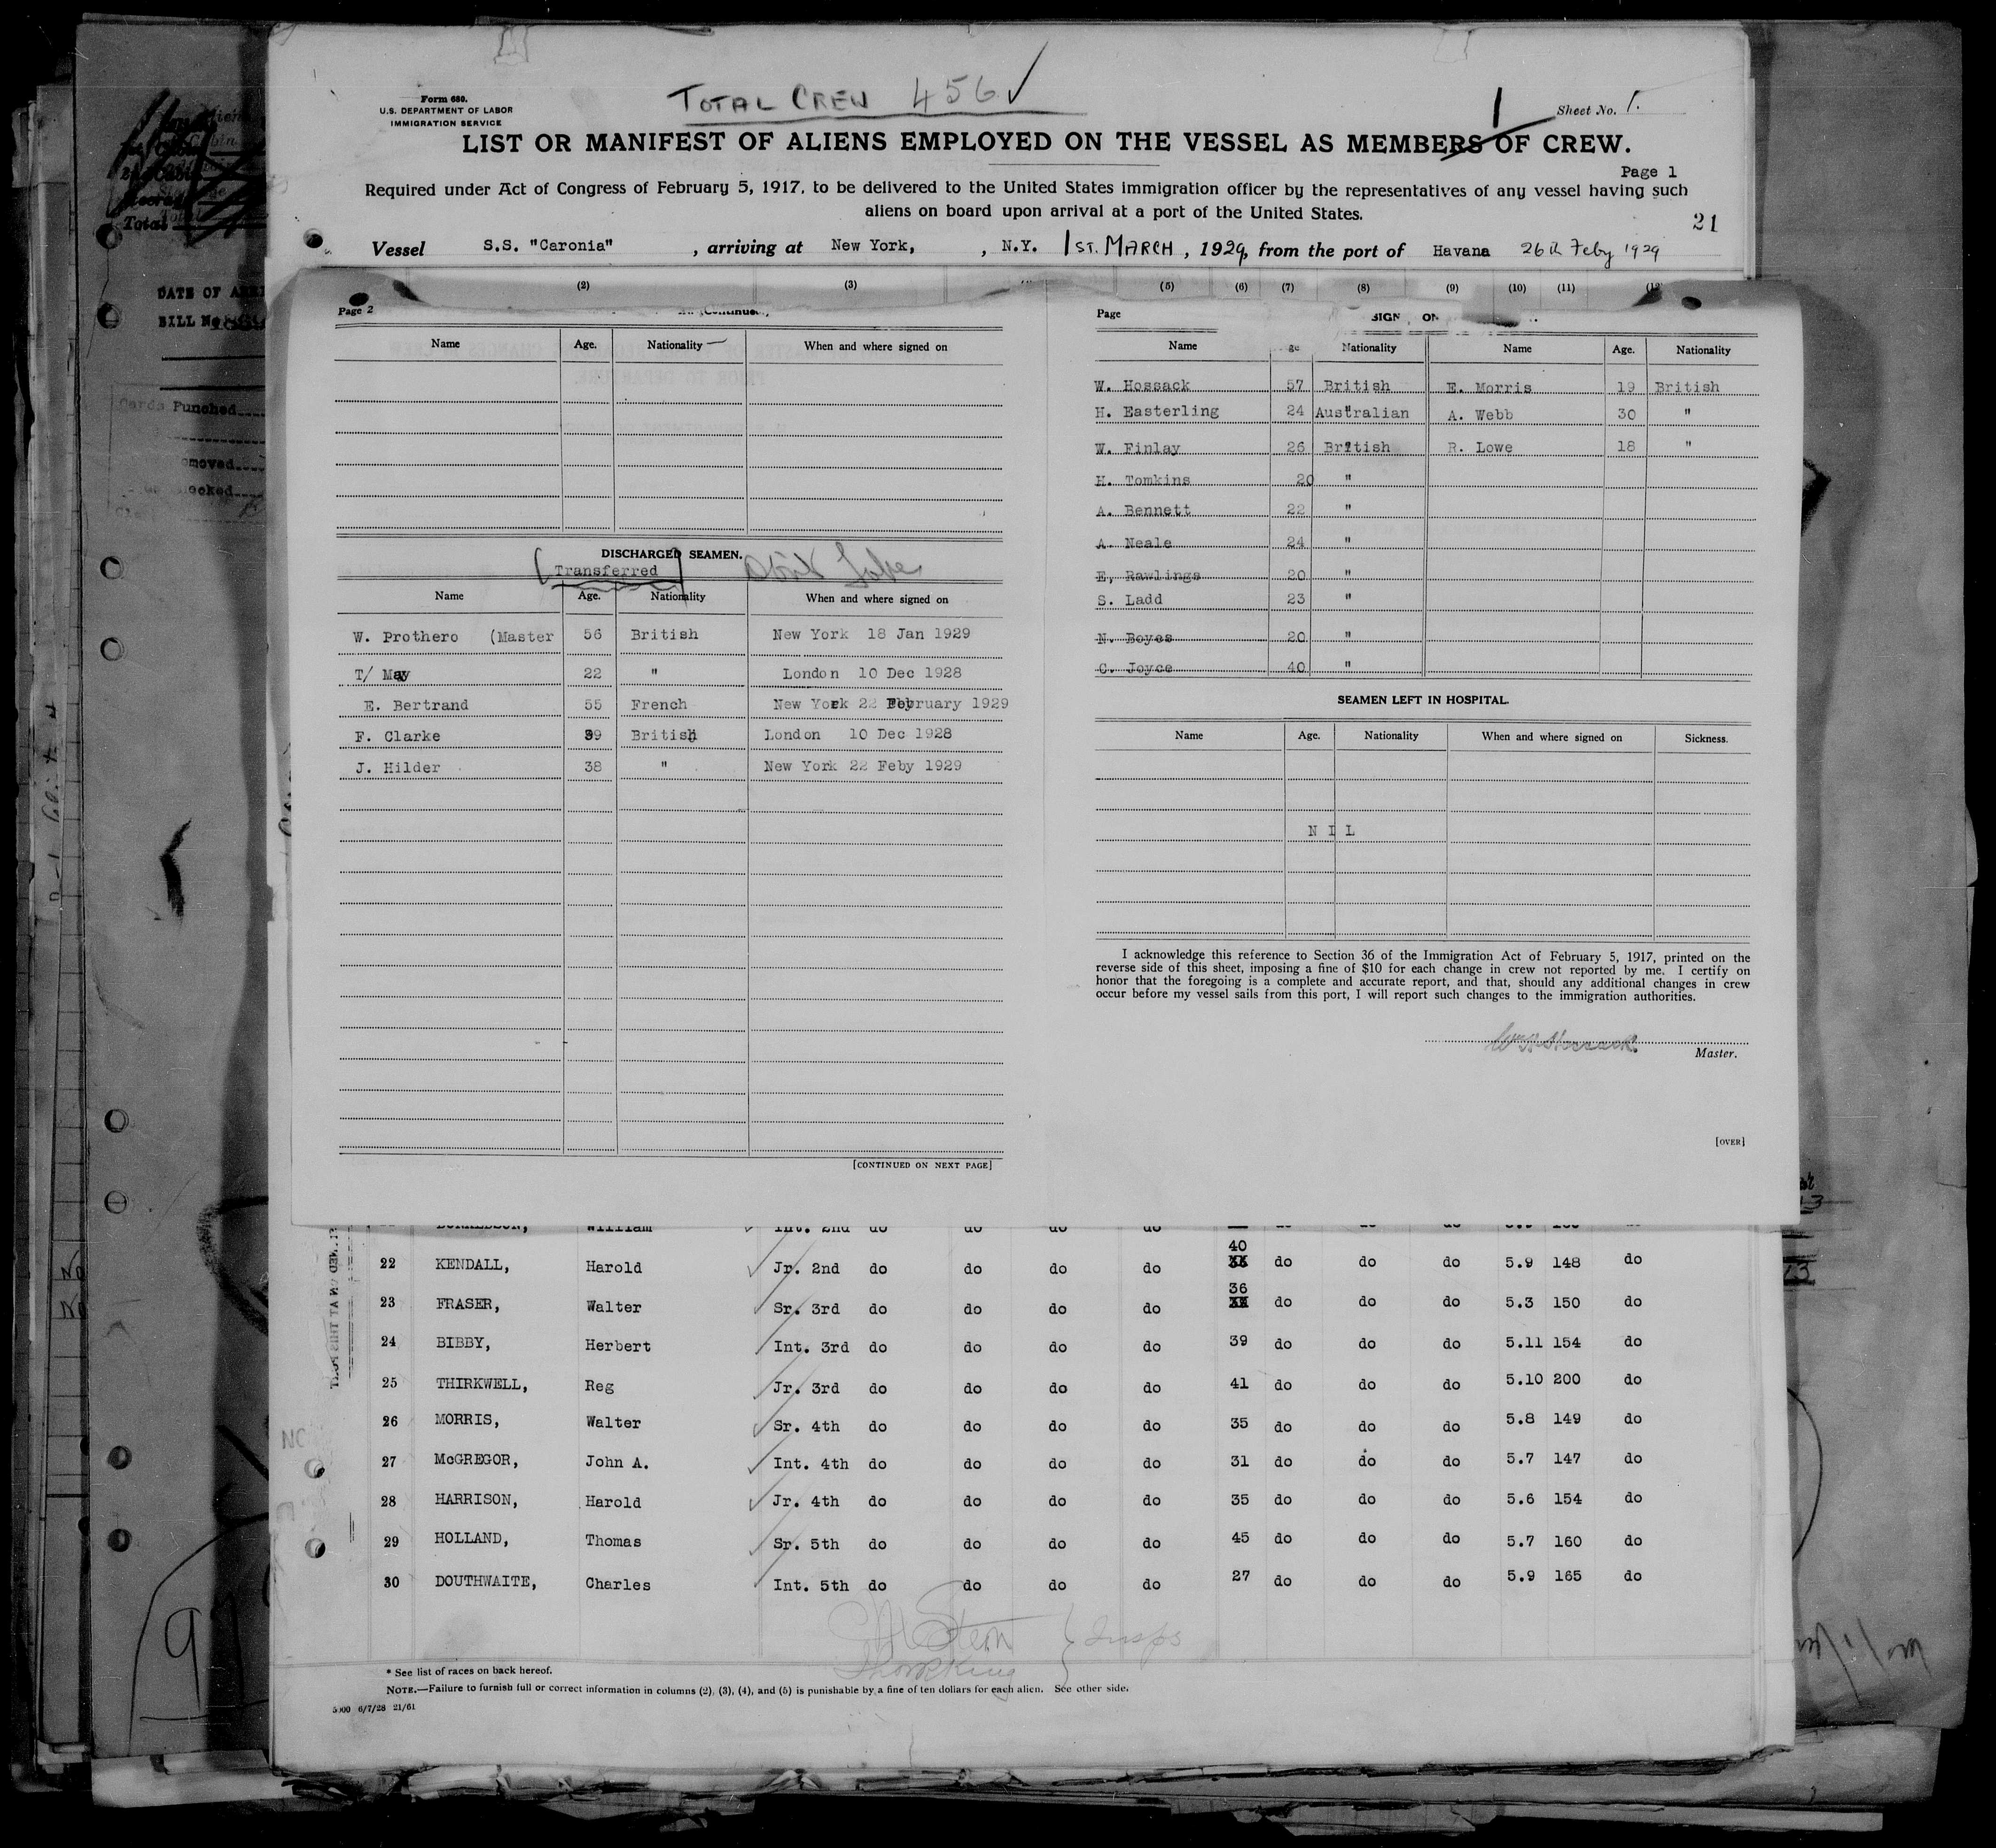 TOTAL CREW 456 ✓
Form 680.
U.S. DEPARTMENT OF LABOR
IMMIGRATION SERVICE
1
Sheet No. 1.
LIST OR MANIFEST OF ALIENS EMPLOYED ON THE VESSEL AS MEMBERS OF CREW.
Page 1
Required under Act of Congress of February 5, 1917, to be delivered to the United States immigration officer by the representatives of any vessel having such
aliens on board upon arrival at a port of the United States.
21
Vessel S.S. "Caronia" , arriving at New York, , N.Y. 1ST. MARCH , 1929, from the port of Havana 26th Feby 1929
(2) (3) (5) (6) (7) (8) (9) (10) (11)
Page 2
Name Age. Nationality When and where signed on
DISCHARGED SEAMEN.
(Transferred)
Name Age. Nationality When and where signed on
W. Prothero (Master 56 British New York 18 Jan 1929
T/ May 22 " London 10 Dec 1928
E. Bertrand 55 French New York 22 February 1929
F. Clarke 39 British London 10 Dec 1928
J. Hilder 38 " New York 22 Feby 1929
[CONTINUED ON NEXT PAGE]
Page
SIGN ON
Name Age Nationality Name Age. Nationality
W. Hossack 57 British E. Morris 19 British
H. Easterling 24 Australian A. Webb 30 "
W. Finlay 26 British R. Lowe 18 "
H. Tomkins 20 "
A. Bennett 22 "
A. Neale 24 "
E, Rawlings 20 "
S. Ladd 23 "
N. Boyes 20 "
C. Joyce 40 "
SEAMEN LEFT IN HOSPITAL.
Name Age. Nationality When and where signed on Sickness.
N I L
I acknowledge this reference to Section 36 of the Immigration Act of February 5, 1917, printed on the
reverse side of this sheet, imposing a fine of $10 for each change in crew not reported by me. I certify on
honor that the foregoing is a complete and accurate report, and that, should any additional changes in crew
occur before my vessel sails from this port, I will report such changes to the immigration authorities.
Hossack
Master.
[OVER]
William Int. 2nd do do do do
40
22 KENDALL, Harold Jr. 2nd do do do do do do do 5.9 148 do
36
23 FRASER, Walter Sr. 3rd do do do do do do do 5.3 150 do
24 BIBBY, Herbert Int. 3rd do do do do 39 do do do 5.11 154 do
25 THIRKWELL, Reg Jr. 3rd do do do do 41 do do do 5.10 200 do
26 MORRIS, Walter Sr. 4th do do do do 35 do do do 5.8 149 do
27 McGREGOR, John A. Int. 4th do do do do 31 do do do 5.7 147 do
28 HARRISON, Harold Jr. 4th do do do do 35 do do do 5.6 154 do
29 HOLLAND, Thomas Sr. 5th do do do do 45 do do do 5.7 160 do
30 DOUTHWAITE, Charles Int. 5th do do do do 27 do do do 5.9 165 do
Stern
Insps
* See list of races on back hereof.
NOTE.—Failure to furnish full or correct information in columns (2), (3), (4), and (5) is punishable by a fine of ten dollars for each alien. See other side.
5000 6/7/28 21/61
Total
DATE OF
BILL No
Cards Punched